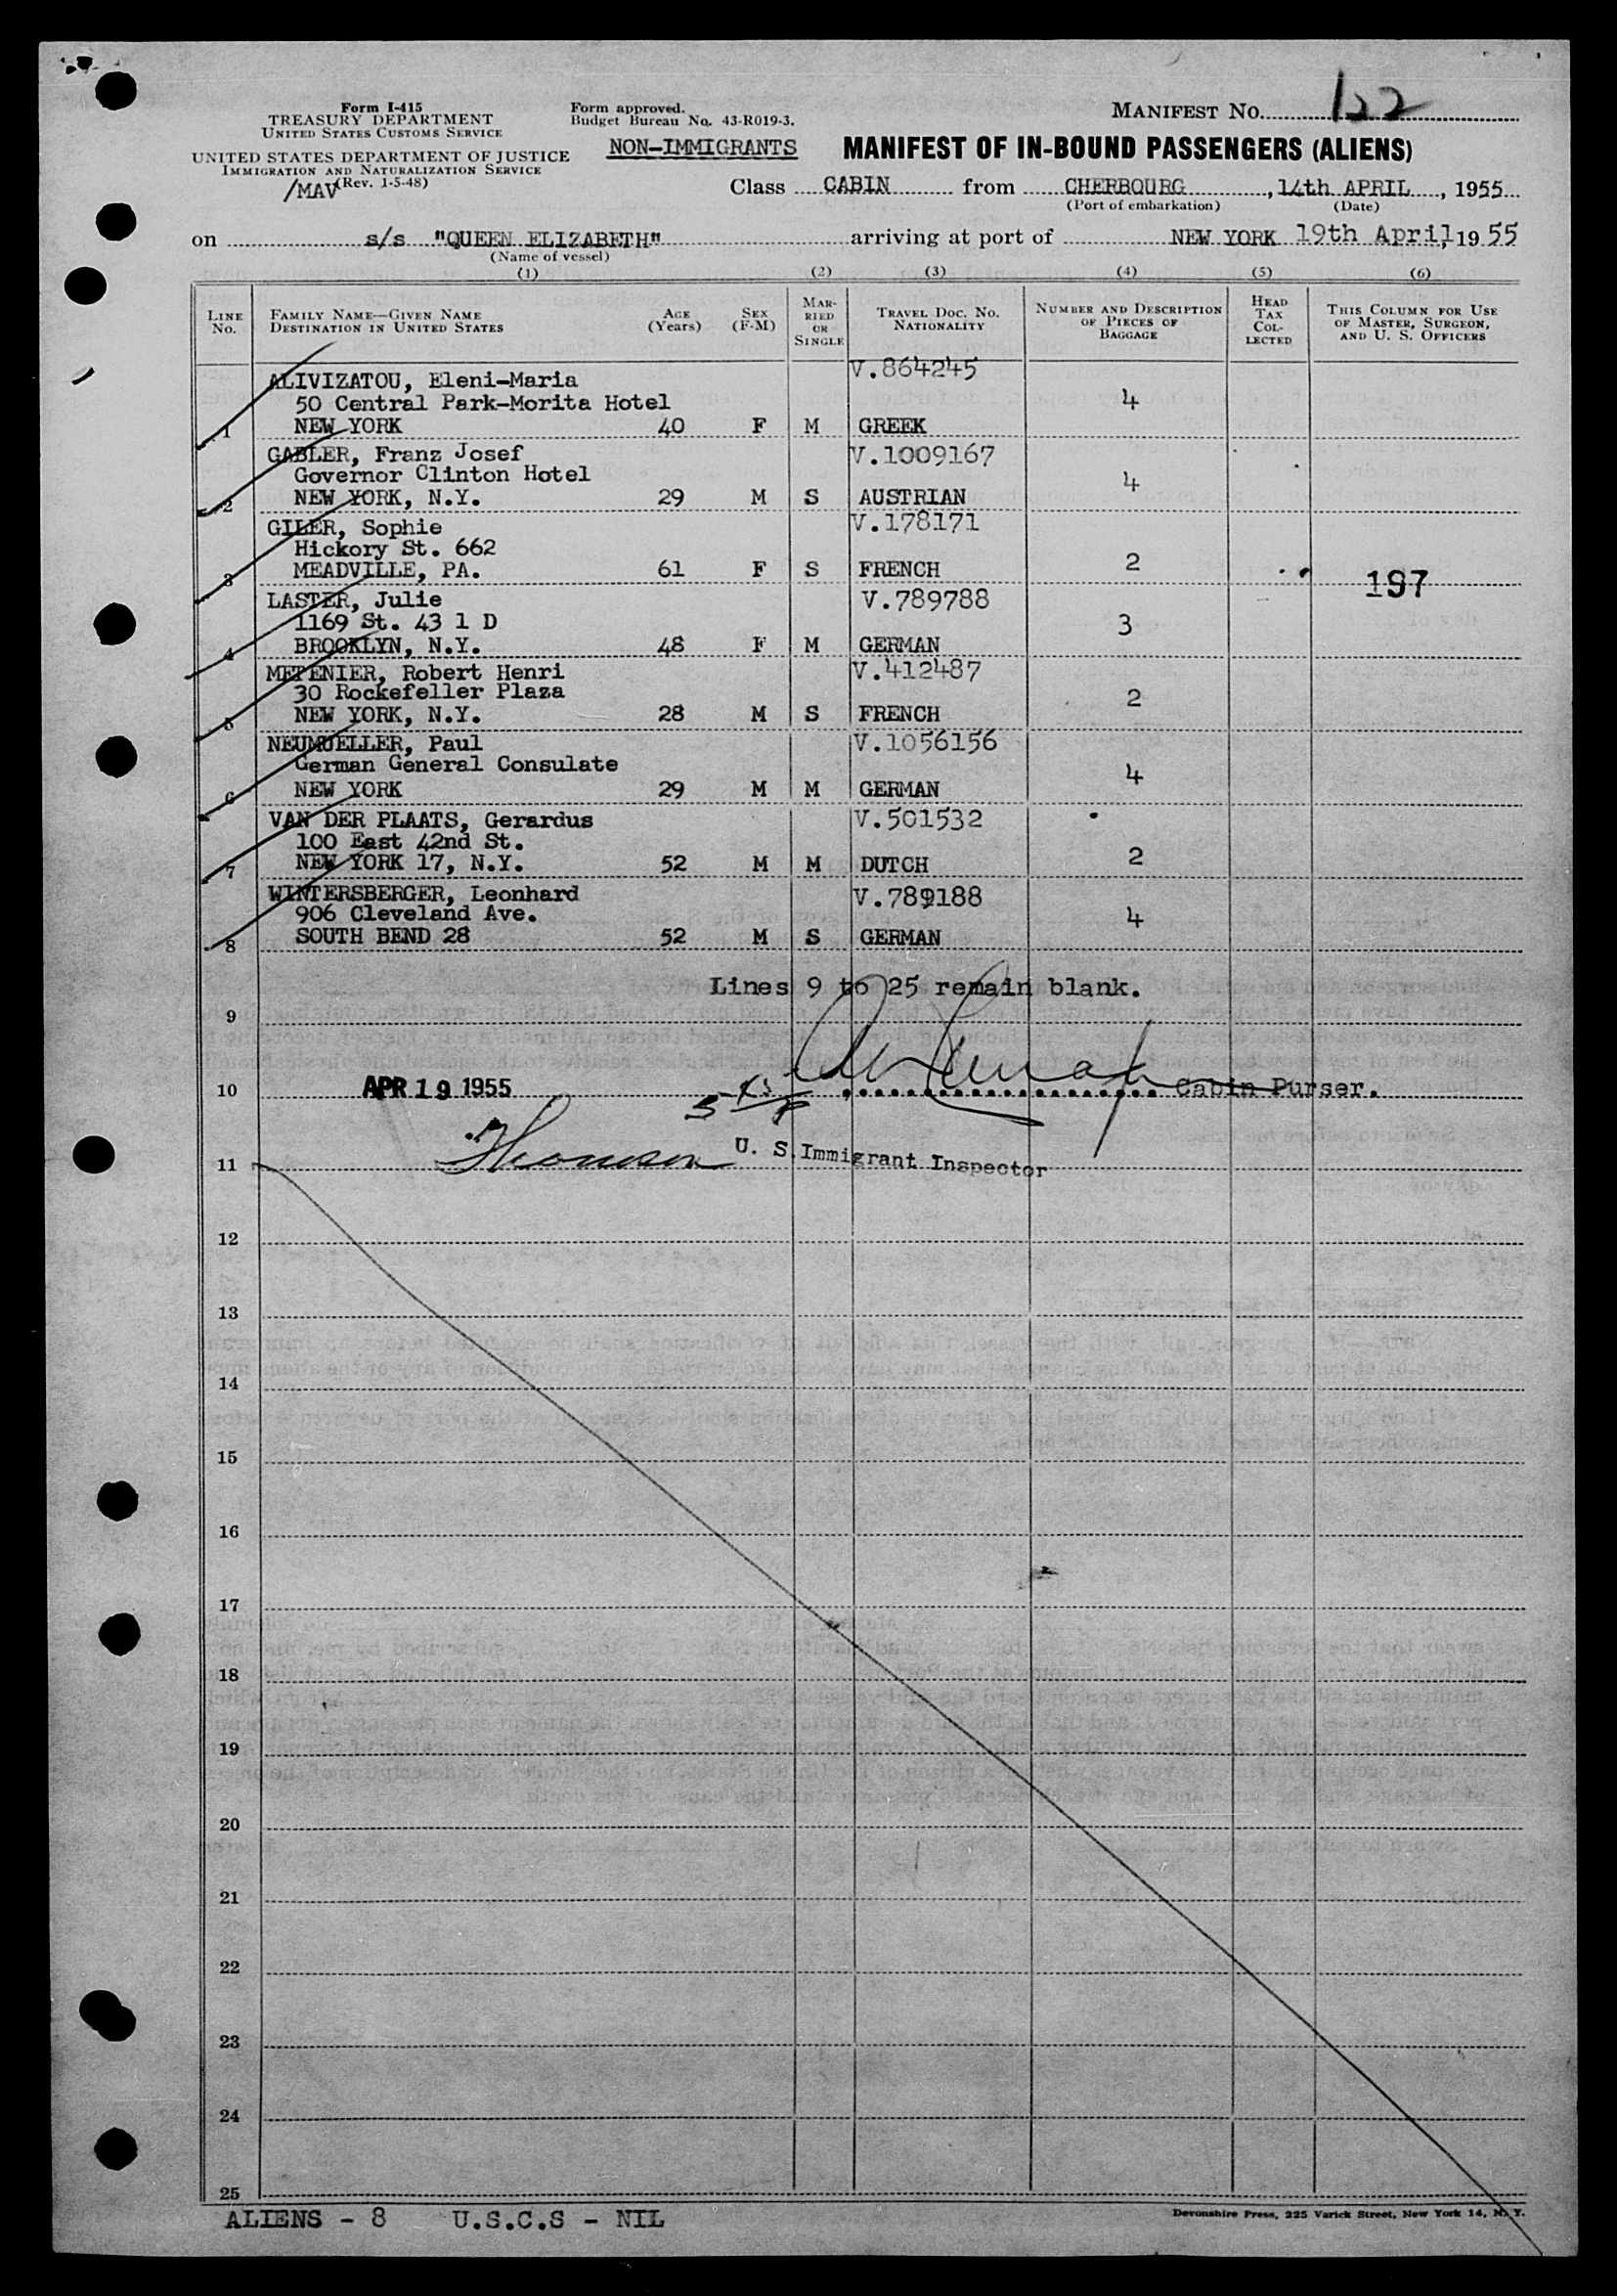 Form I-415
TREASURY DEPARTMENT
UNITED STATES CUSTOMS SERVICE
UNITED STATES DEPARTMENT OF JUSTICE
IMMIGRATION AND NATURALIZATION SERVICE
(Rev. 1-5-48)
/MAV
Form approved.
Budget Bureau No. 43-R019-3.
NON-IMMIGRANTS
MANIFEST NO. 122
MANIFEST OF IN-BOUND PASSENGERS (ALIENS)
Class CABIN from CHERBOURG, 14th APRIL, 1955
(Port of embarkation) (Date)
on s/s "QUEEN ELIZABETH" arriving at port of NEW YORK 19th April, 1955
(Name of vessel)
(1) (2) (3) (4) (5) (6)
LINE NO. FAMILY NAME—GIVEN NAME DESTINATION IN UNITED STATES AGE (Years) SEX (F-M) MARRIED OR SINGLE TRAVEL DOC. NO. NATIONALITY NUMBER AND DESCRIPTION OF PIECES OF BAGGAGE HEAD TAX COLLECTED THIS COLUMN FOR USE OF MASTER, SURGEON, AND U. S. OFFICERS
ALIVIZATOU, Eleni-Maria V.864245
50 Central Park-Morita Hotel 4
1 NEW YORK 40 F M GREEK
GABLER, Franz Josef V.1009167
Governor Clinton Hotel 4
2 NEW YORK, N.Y. 29 M S AUSTRIAN
GILER, Sophie V.178171
Hickory St. 662
3 MEADVILLE, PA. 61 F S FRENCH 2 197
LASTER, Julie V.789788
1169 St. 43 1 D 3
4 BROOKLYN, N.Y. 48 F M GERMAN
METENIER, Robert Henri V.412487
30 Rockefeller Plaza 2
5 NEW YORK, N.Y. 28 M S FRENCH
NEUMUELLER, Paul V.1056156
German General Consulate 4
6 NEW YORK 29 M M GERMAN
VAN DER PLAATS, Gerardus V.501532
100 East 42nd St. 2
7 NEW YORK 17, N.Y. 52 M M DUTCH
WINTERSBERGER, Leonhard V.789188
906 Cleveland Ave. 4
8 SOUTH BEND 28 52 M S GERMAN
Lines 9 to 25 remain blank.
9
10 APR 19 1955 Cabin Purser.
11 Thomsen U. S. Immigrant Inspector
12
13
14
15
16
17
18
19
20
21
22
23
24
25
ALIENS - 8 U.S.C.S - NIL
Devonshire Press, 225 Varick Street, New York 14, N. Y.